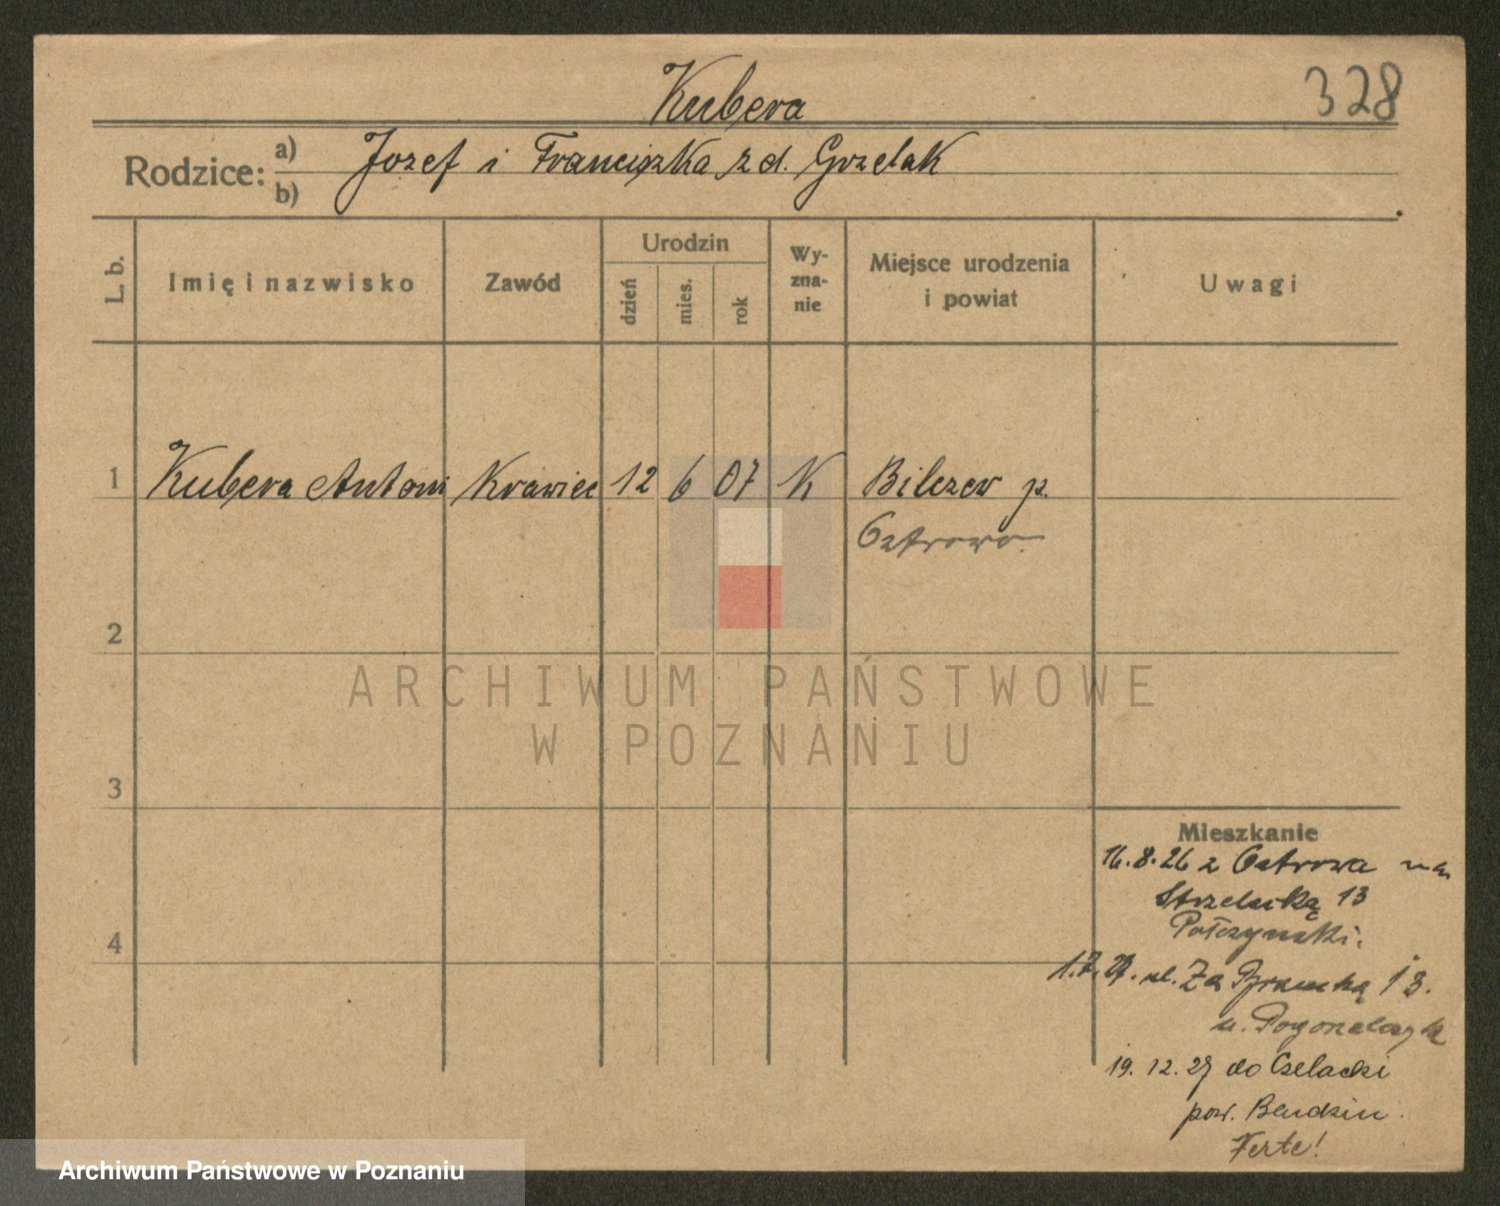 Kubera
328
Rodzice: a) Jozef i Franciszka zd. Grzelak
b)
L. b.
Imię i nazwisko
Zawód
Urodzin
dzień
mies.
rok
Wy-
zna-
nie
Miejsce urodzenia
i powiat
Uwagi
1 Kubera Antoni Krawiec 12 6 07 K Bilczew p.
Ostrowo
2
ARCHIWUM PAŃSTWOWE
W POZNANIU
3
Mieszkanie
16.8.26 z Ostrowa na
Strzelecką 13
4
1.7.27. ul. Za Bramką 13.
u.
19. 12. 27 do Czelacki
pow. Bendzin.
Verte!
Archiwum Państwowe w Poznaniu